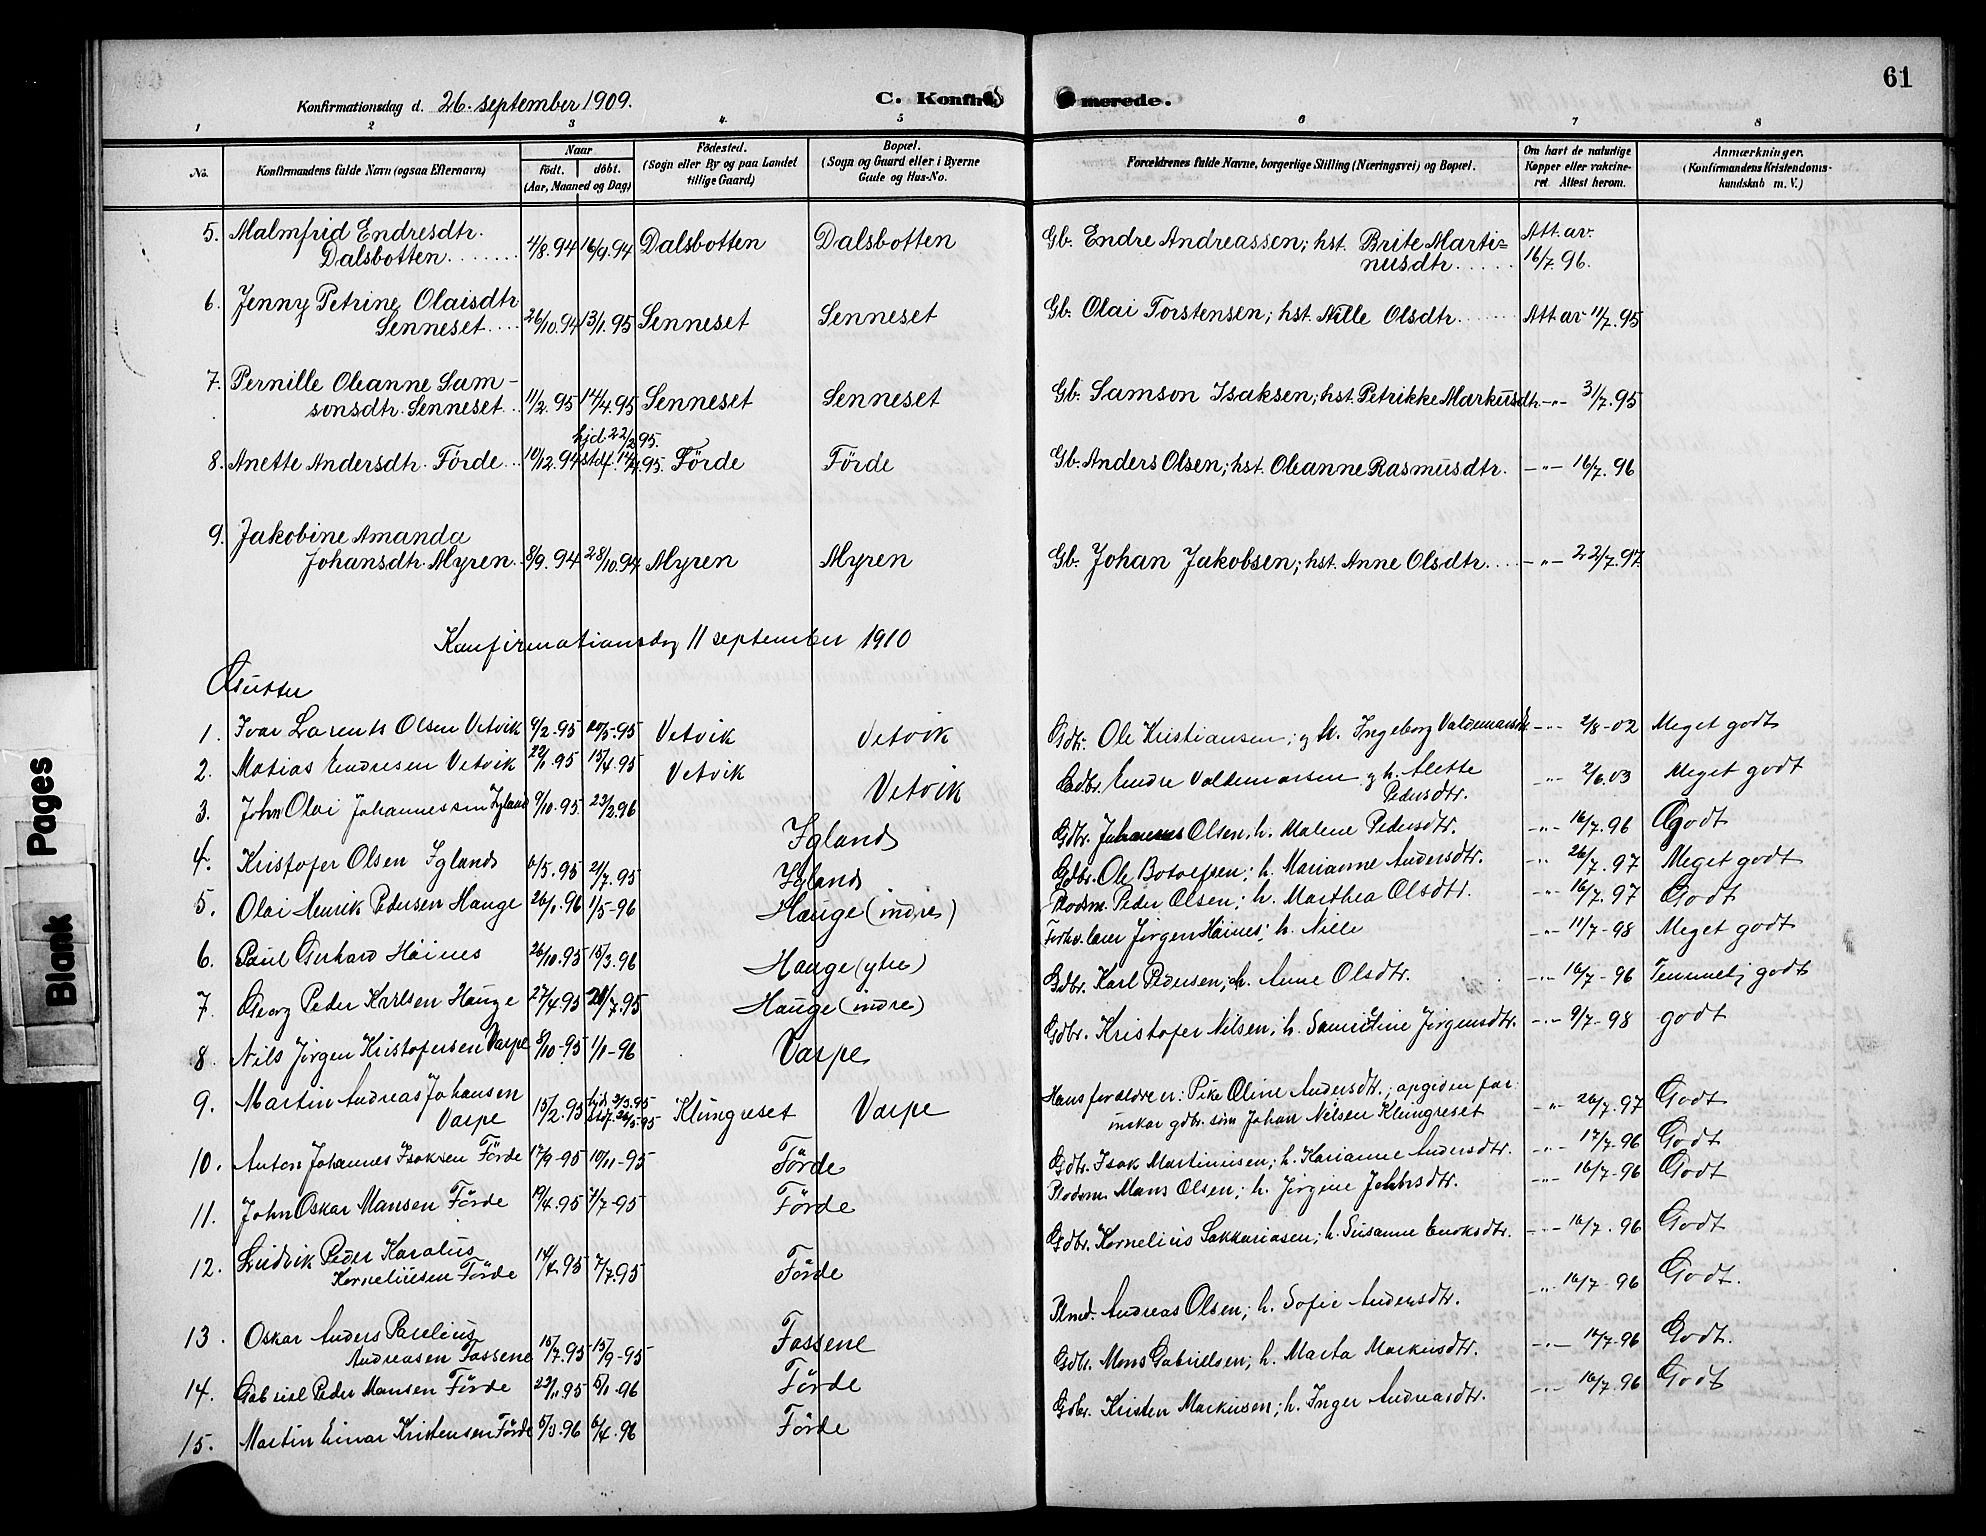 61
Konfirmationsdag d. 26. september 1909. C. Konfir merede.
1 2 3 4. 5 6 7 8
No. Konfirmandens fulde Navn (ogsaa Efternavn) Naar født. døbt. (Aar, Maaned og Dag) Fødested. (Sogn eller By og paa Landet tillige Gaard) Bopæl. (Sogn og Gaard eller i Byerne Gade og Hus-No. Forældrenes fulde Navne, borgerlige Stilling (Næringsvei) og Bopæl. Om havt de naturlige Kopper eller vakcineret. Attest herom. Anmærkninger. (Konfirmandens Kristendomskundskab m. V.)
5. Malmfrid Endresdtr. Dalsbotten 4/8.94 16/9.94 Dalsbotten Dalsbotten Gb. Endre Andreassen; hst. Brite Martinusdtr. Att. av. 16/7.96.
6. Jenny Petrine Olaisdtr Senneset 26/10.94 13/1.95 Senneset Senneset Gb. Olai Torstensen; hst. Nille Olsdtr. Att av 11/7.95
7. Pernille Oleanne Samsonsdtr. Senneset 11/2.95 14/4.95 Senneset Senneset Gb. Samson Isaksen; hst. Petrikke Markusdtr -"- 31/7.95
8. Anette Andersdtr. Förde 10/12.94 hjd. 22/2 95. stdf. 14/4.95. Förde Förde Gb. Anders Olsen; hst. Oleanne Rasmusdtr. -"- 16/7.96
9. Jakobine Amanda Johansdtr. Myren 8/9.94 28/10.94 Myren Myren Gb. Johan Jakobsen; hst. Anne Olsdtr. -"- 22/7.97.
Konfirmationsdag 11 september 1910
Gutter
1. Ivar Larents Olsen Vetvik 9/2.95 20/5-95 Vetvik Vetvik Gdbr. Ole Kristiansen; og h. Ingeborg Valdemarsdtr -"- 2/8-02 Meget godt
2. Matias Endresen Vetvik 22/1.95 15/4.95 Vetvik Vetvik Gdbr. Endre Valdemarsen og h. Alette Pedersdtr. -"- 2/6.03 Meget godt
3. John Olai Johannessen Igland 9/10.95. 23/2.96 Igland Gdbr. Johannes Olsen, h. Malene Pedersdtr. -"- 16/7.96 Godt
4. Kristofer Olsen Igland 6/5.95 21/7.95 Igland Gdbr. Ole Botolfsen; h. Marianne Andersdtr. -"- 26/7.97 Meget godt
5. Olai Henrik Pedersen Hauge 26/1.96 1/5-96 Hauge (indre) Plodsm. Peder Olsen; h. Marthea Olsdtr. -"- 16/7.97 Godt
6. Paul Gerhard Höines 26/10.95 15/3.96 Hauge (ytre) Jörgen Höines; h. Nille -"- 11/7-98 Meget godt
7. Georg Peder Karlsen Hauge 27/4.95 21/7.95 Hauge (indre) Gdbr. Karl Pedersen; h. Anne Olsdtr. -"- 16/7-96 Temmelig godt
8. Nils Jörgen Kristofersen Varpe 8/10-95 1/1-96 Varpe Gdbr. Kristofer Nilsen; h. Jörgensdtr. -"- 9/7-98 godt
9. Martin Andreas Johansen Varpe 15/2.95 hjd. 3/3.95 stdf. 26/5-95 Klungreset Varpe Hans forældre er: Pike Oline Andersdtr.; opgiven far: gdbr. søn Johan Nilsen Klungreset -"- 26/7.97 Godt
10. Anton Johannes Isaksen Förde 17/9-95 10/11-95 Förde Gdbr. Isak Martinusen; h. Karianne Andersdtr. -"- 17/7.96 Godt
11. John Oskar Mansen Förde 19/4.95 7/7-95 Förde Plodsm. Mans Olsen; h. Jörgine Johnsdtr. -"- 16/7-96 Godt
12. Ludvik Peder Karolus Korneliusen Förde 14/4.95 7/7.95 Förde Gdbr. Kornelius Sakkariasen; h. Susanne Enoksdtr. -"- 16/7.96 Godt
13. Oskar Anders Parelius Andreasen Fossene 15/7.95 15/9-95 Fossene Plmd. Andreas Olsen; h. Sofie Andersdtr. -"- 16/7-96 Godt.
14. Gabriel Peder Monsen Förde 23/11.95 5/1-96 Förde Gdbr. Mons Gabrielsen; h. Marta Markusdtr. -"- 16/7-96 Godt.
15. Martin Einar Kristensen Förde 5/3.96 6/4.96 Förde Gdbr. Kristen Markusen; h. Inger Andreasdtr. -"- 16/7.96 Godt
Blank Pages